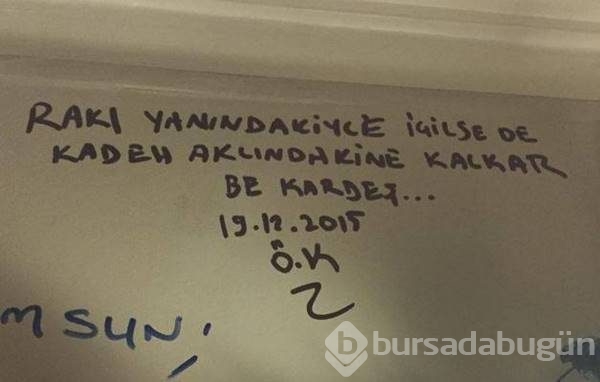 RAKI YANINDAKİYLE İÇİLSE DE
KADEH AKLINDAKİNE KALKAR
BE KARDEŞ...
19.12.2015
Ö.K
M SUN,
b bursadabugün